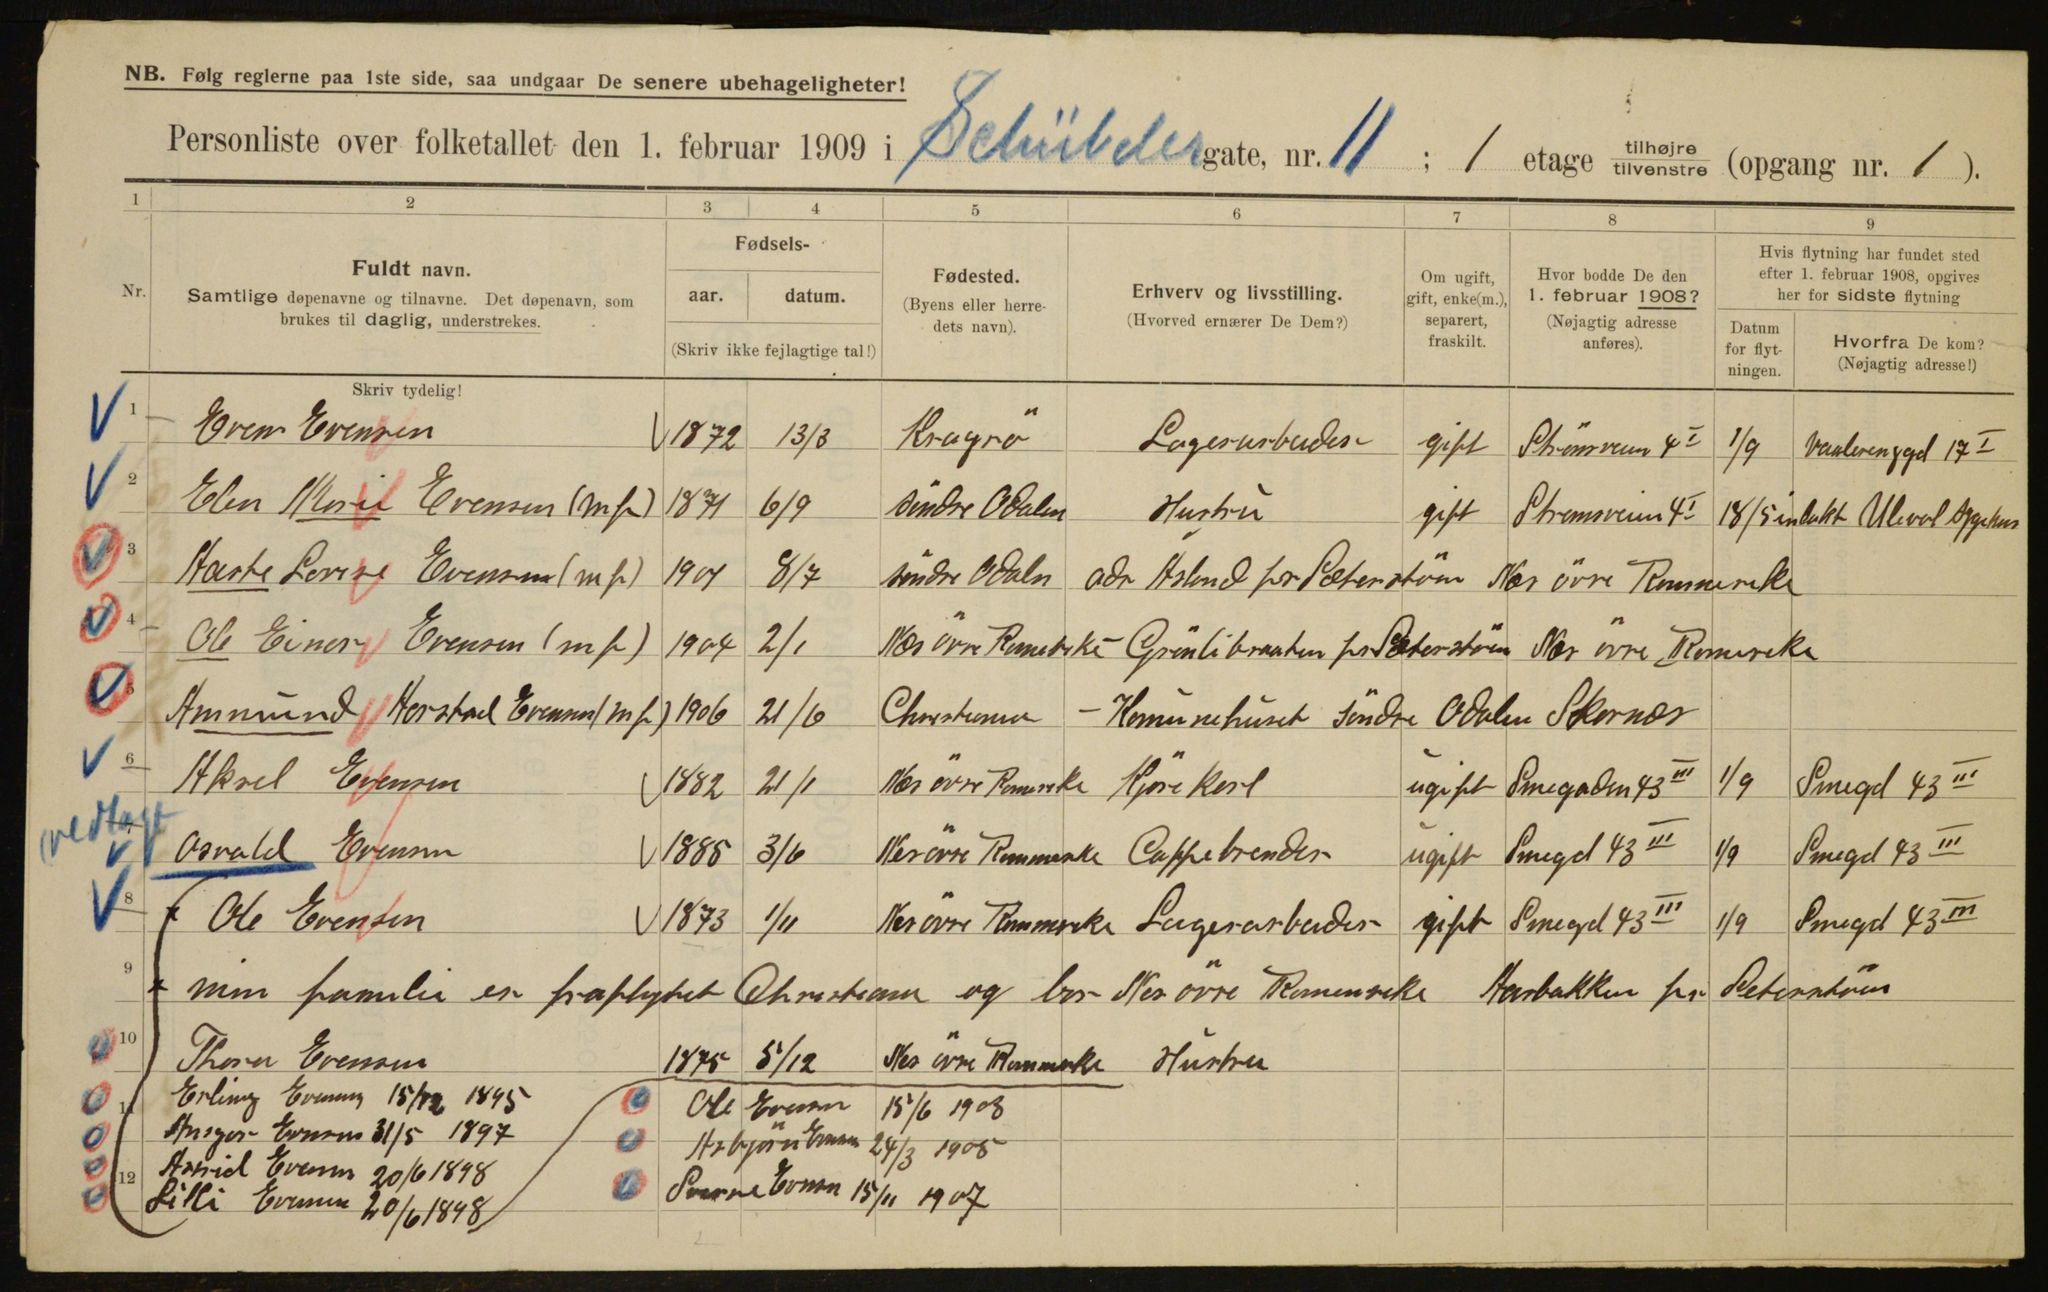 NB. Følg reglerne paa 1ste side, saa undgaar De senere ubehageligheter!
Personliste over folketallet den 1. februar 1909 i Schübeler gate, nr. 11 ; 1 etage tilhøjre tilvenstre (opgang nr. 1 ).
1 2 3 4 5 6 7 8 9
Nr. Fuldt navn. Samtlige døpenavne og tilnavne. Det døpenavn, som brukes til daglig, understrekes.
Fødsels- aar. datum. (Skriv ikke fejlagtige tal!)
Fødested. (Byens eller herredets navn).
Erhverv og livsstilling. (Hvorved ernærer De Dem?)
Om ugift, gift, enke(m.), separert, fraskilt.
Hvor bodde De den 1. februar 1908? (Nøjagtig adresse anføres).
Hvis flytning har fundet sted efter 1. februar 1908, opgives her for sidste flytning
Datum for flytningen. Hvorfra De kom? (Nøjagtig adresse!)
Skriv tydelig!
1 Even Evensen 1872 13/3 Kragrö Lagerarbeider gift Strömsveien 4 I 1/9 Vaalerenggd 17 I
2 Elen Marie Evensen (mf) 1871 6/9 söndre Odalen Hustru gift Strømsveien 4 I 18/5 indlakt Uleval
3 Lovise Evensen (mf) 1901 8/7 söndre Odalen adr Asland pr Sæterstöen Nes övre Rommerike
4 Ole Einar Evensen (mf) 1904 2/1 Nes övre Romerike Grönlibraaten pr Sæterstöen Nes övre Romerike
5 Ammund Harstad Evensen (mf) 1906 21/6 Christiania - Komunehuset söndre Odalen Skarnes
6 Aksel Evensen 1882 21/1 Nes övre Romerike Kjörekarl ugift Smegaden 43 III 1/9 Smegd 43 III
vedlagt
7 Osvald Evensen 1885 3/6 Nes övre Rommerike Caffebrender ugift Smegd 43 III 1/9 Smegd 43 III
8 × Ole Evensen 1873 1/11 Nes övre Rommerike Lagerarbeider gift Smegd 43 III 1/9 Smegd 43 III
9 × min familie er fraflyttet Christiania og bor Nes övre Romerike Harbakken pr Seterstöen
10 Thora Evensen 1875 5/12 Nes övre Rommerike Hustru
11 Erling Evensen 15/12 1895 Ole Evensen 15/6 1903
Ansgar Evensen 31/5 1897 Asbjörn Evensen 24/3 1905
12 Astrid Evensen 20/6 1898 Sverre Evensen 15/11 1907
Lilli Evensen 20/6 1898